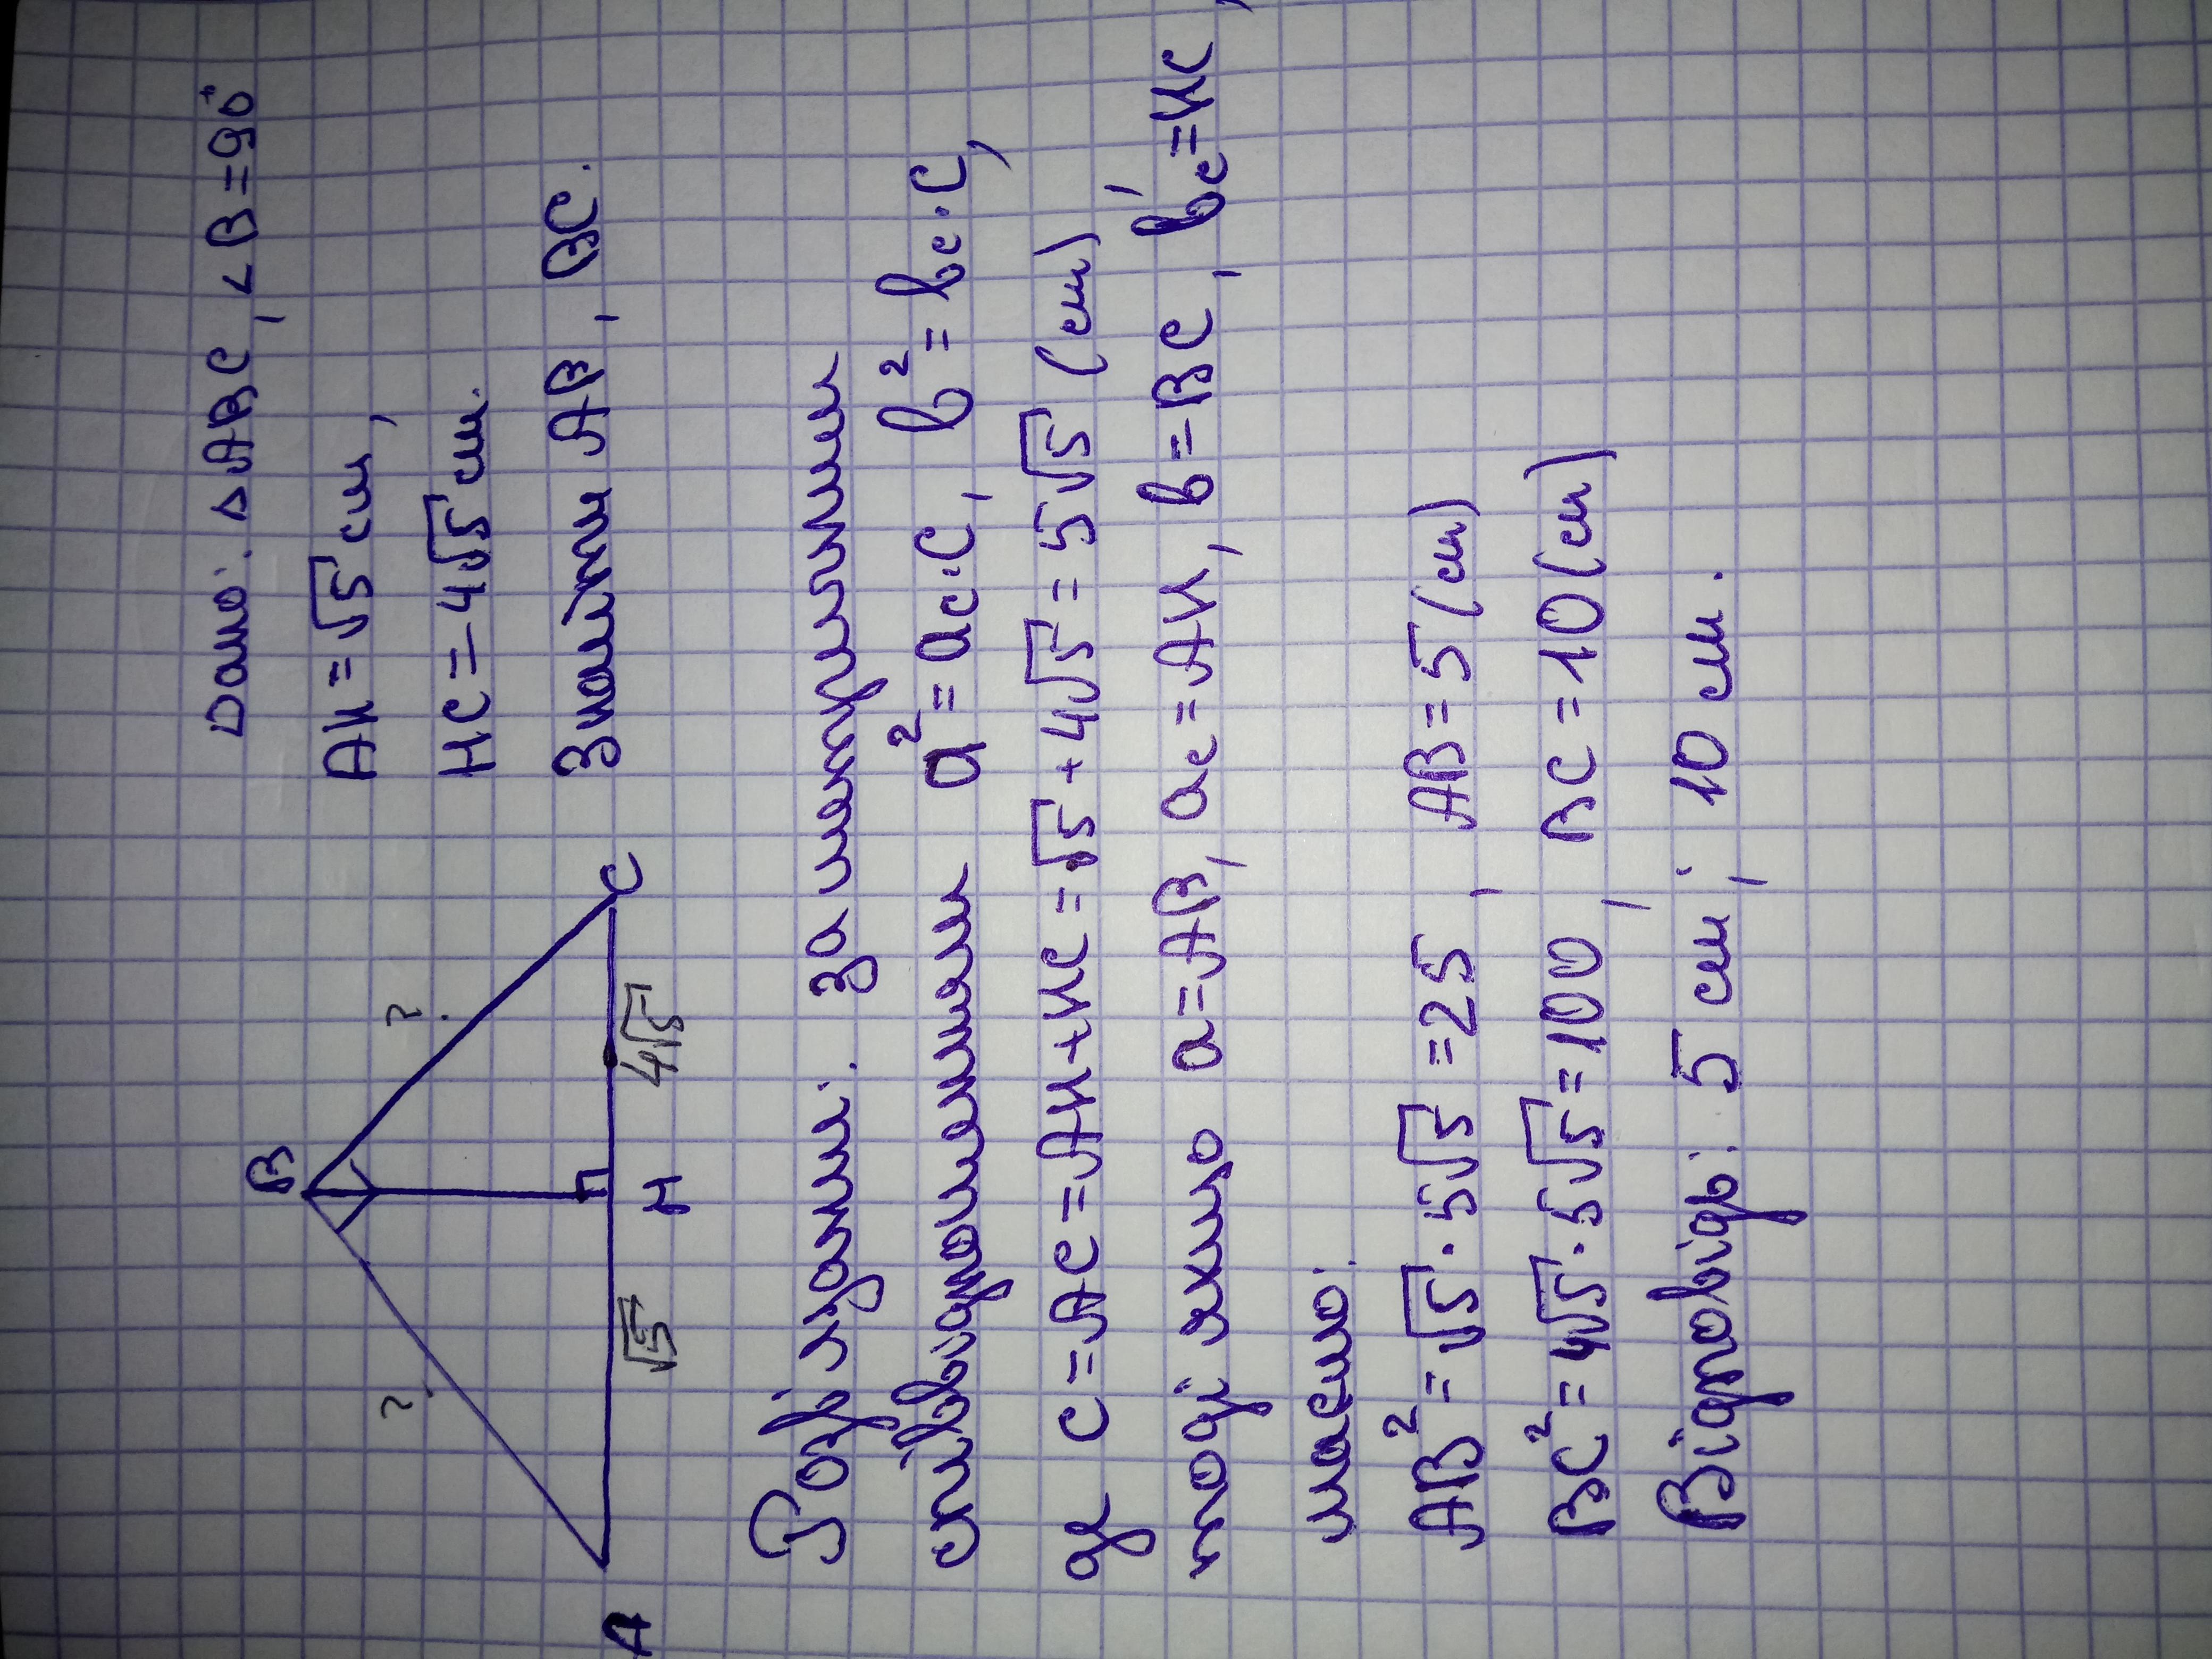 Дано: △ABC, ∠B=90°
AH=√5 см,
HC=4√5 см.
Знайти AB, BC.
B
?
?
A
√5
H
4√5
C
Розв'язання: за метричними
співвідношеннями a²=ac·C, b²=bc·C,
де C=AC=AH+HC=√5+4√5=5√5 (см)
тоді якщо a=AB, ac=AH, b=BC, bc=HC,
маємо:
AB²=√5·5√5=25, AB=5(см)
BC²=4√5·5√5=100, BC=10(см)
Відповідь: 5 см; 10 см.